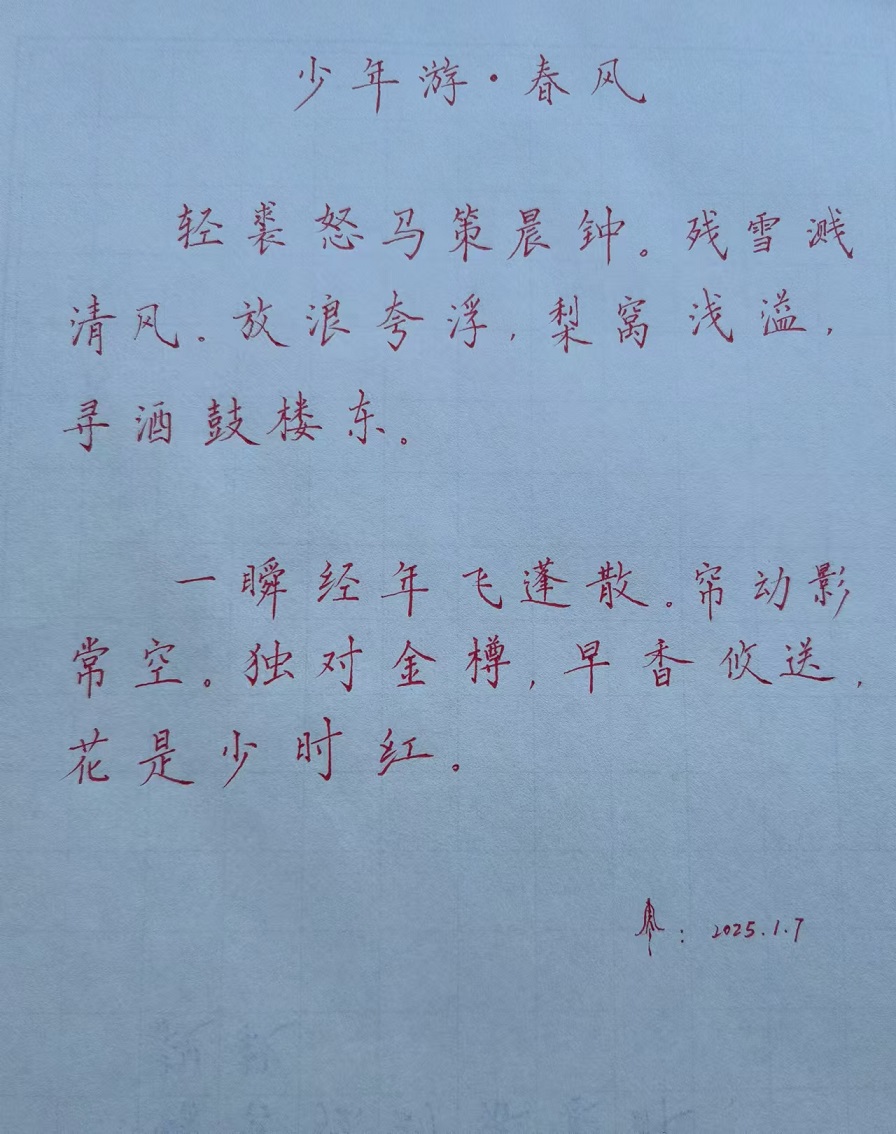 少年游·春风
轻裘怒马策晨钟。残雪溅
清风。放浪夸浮,梨窝浅溢,
寻酒鼓楼东。
一瞬经年飞蓬散。帘动影
常空。独对金樽,早香攸送,
花是少时红。
: 2025.1.7